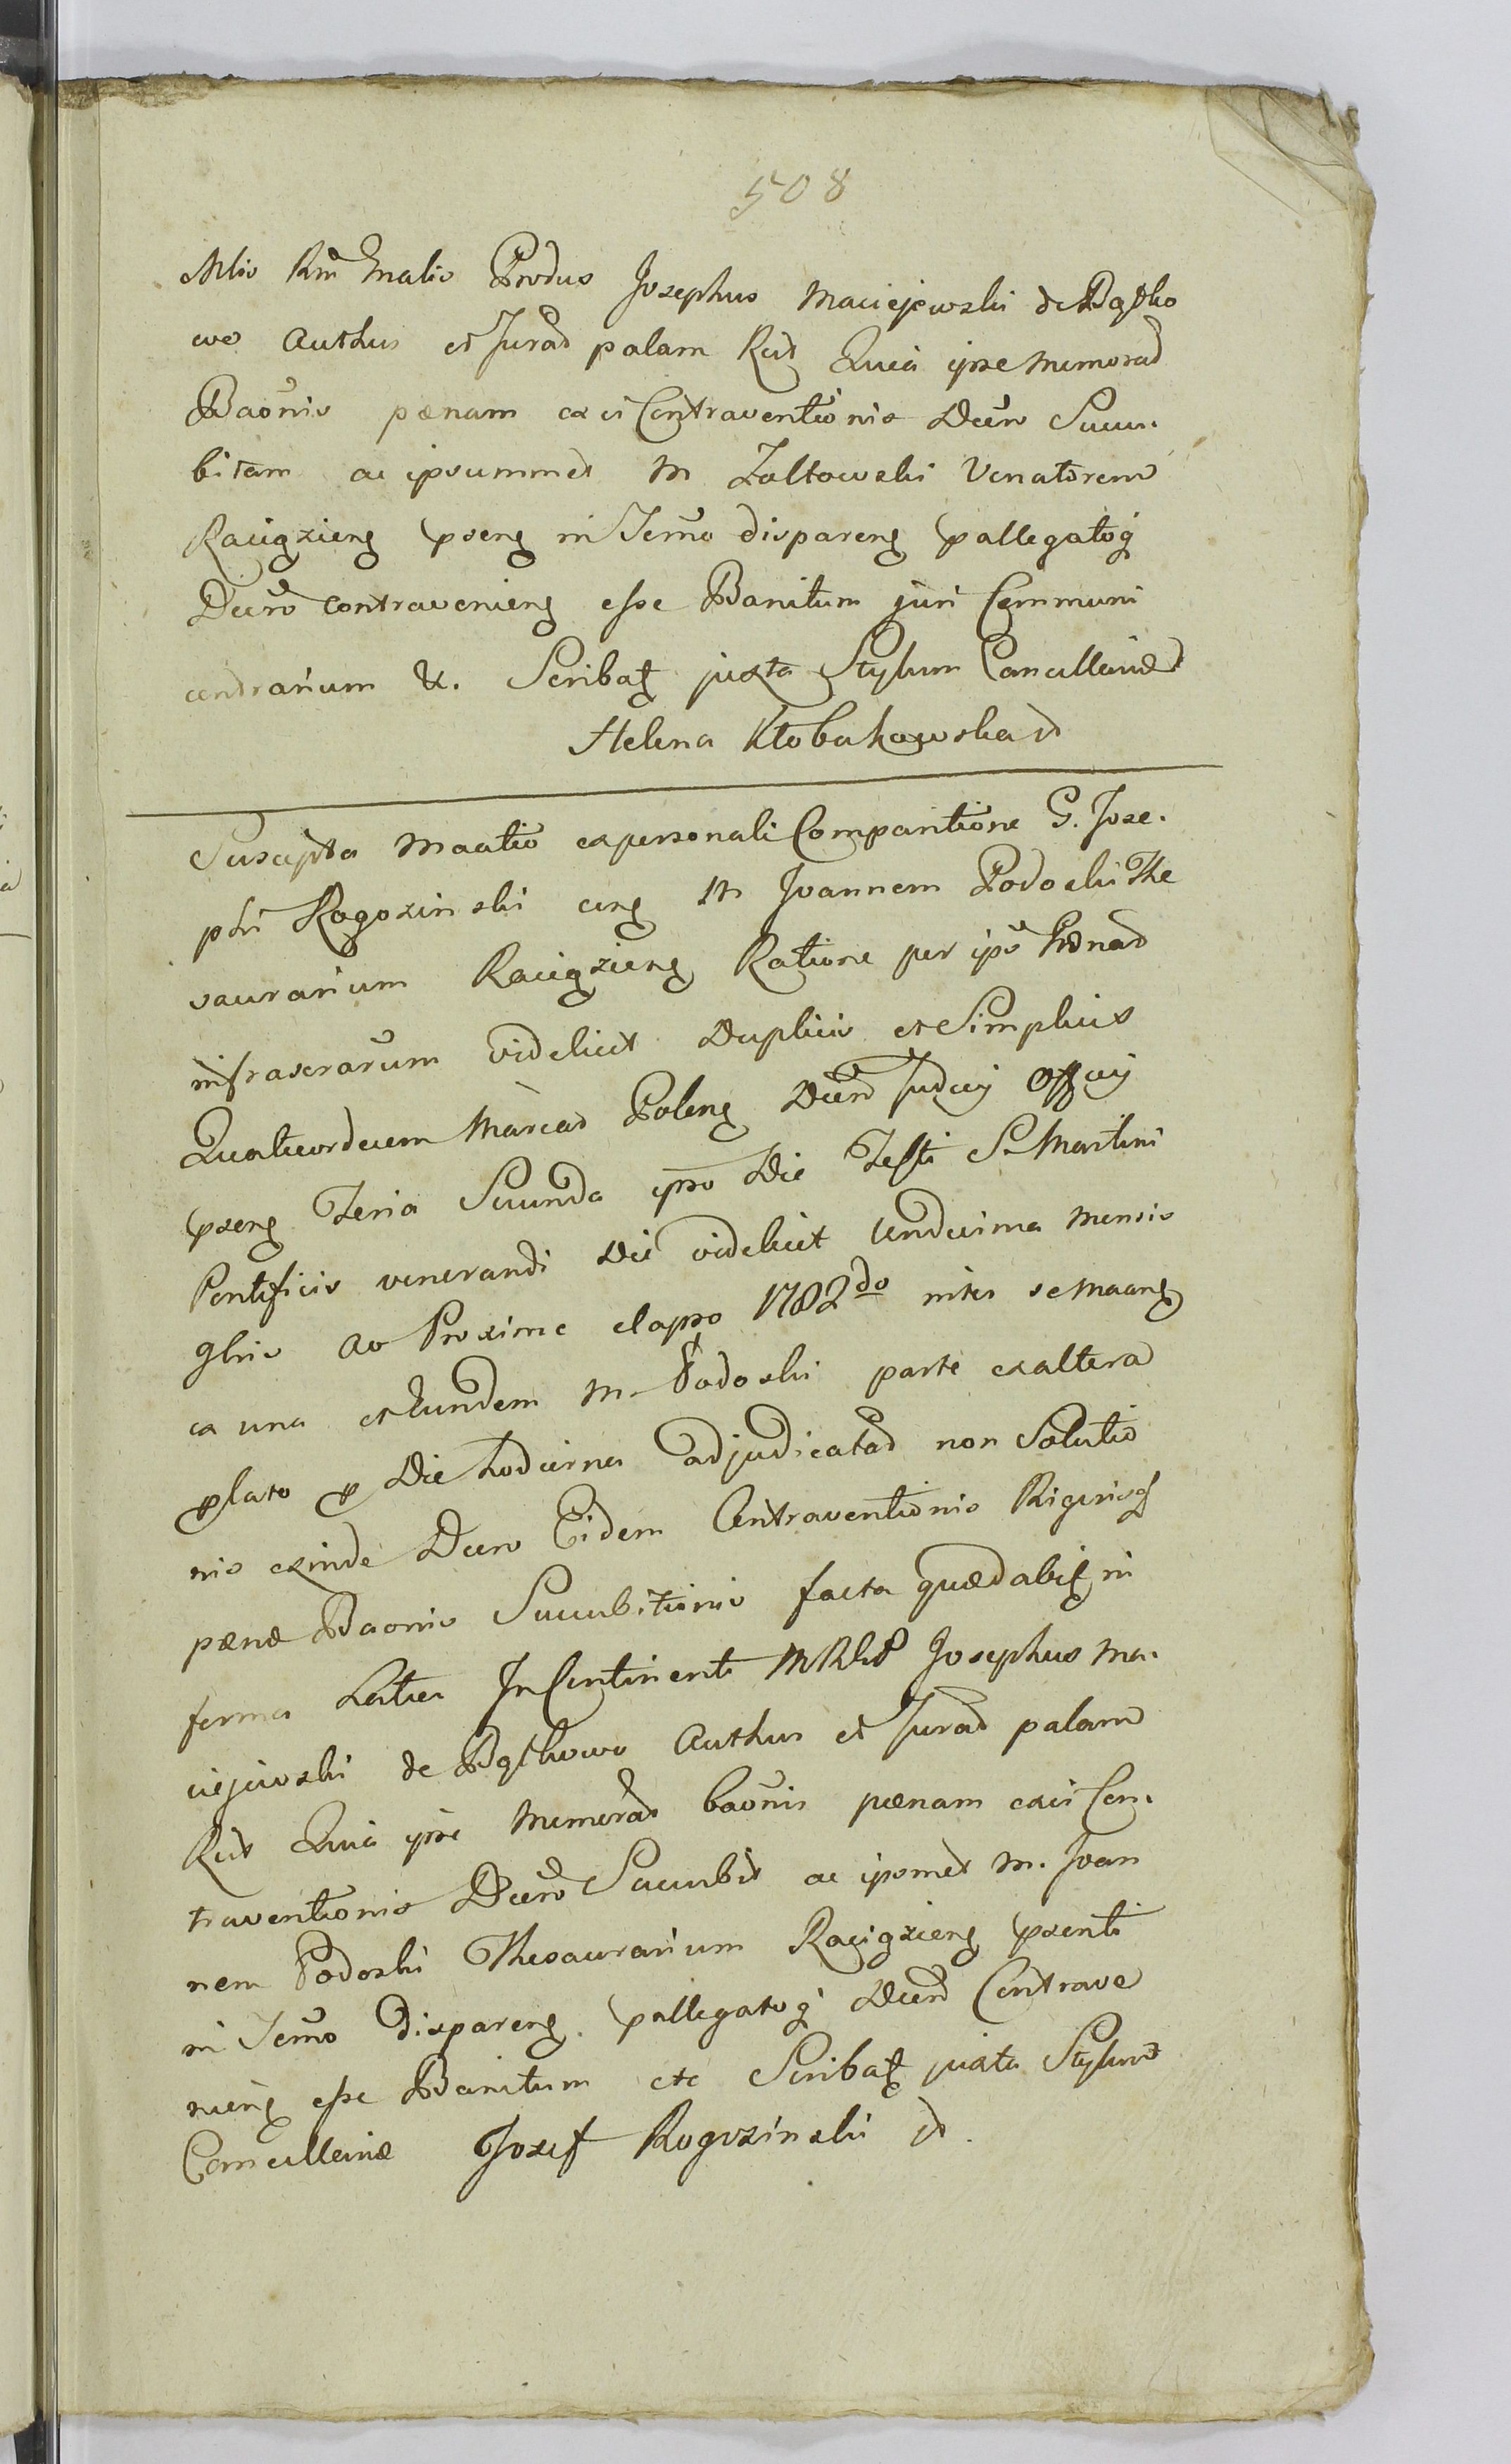 508
Mlis Rm Gnalis Produs Josephus Maciejewski de Bątko
wo Authus et Jurad palam Rcit Quia ipse memorad
Baonis pænam ex vi Contraventionis Decro Sucu-
bitam ac ipsummet M Zołtowski Venatorem
Raciązieng pseng in Termo dispareng pallegatoq
Decro contravenieng esse Banitum juri Communi
contrarium &. Scribat juxta Stylum Cancellariæ
Helena Kłobukowska
Suscepta Maatio expersonali Comparitione G. Jose-
phi Rogozinski cing M Joannem Podoski The
saurarium Raciązieng Ratione per ips
infrascrarum videlicet Duplicis et Simplicis
Quatuordecem Marcas Poleng Decro Judcij Offcij
pseng Feria Secunda ipso Die Festi S. Martini
Pontificis venerandi Die videlicet Undecima Mensis
gbris Ao Proxime elapso 1782do inter se Maang
ex una et Eundem M. Podoski parte exaltera
plato p Die hodierna adjudicatas non Solutio
nis exinde Decro Eidem Contraventionis Rigorisq
pænæ Baonis Sucubitionis facta quædabit in
forma Latiu InContinenti MRGP Josephus Ma-
ciejewski de Bątkowo Authus et Jurad palam
Rcit Quia ipse Memorad baonis pænam exvi Con-
traventionis Decro Sucubit ac ipsmet M. Joan
nem Podoski Thesaurarium Raciązieng psenti
in Termo dispareng pallegatoq Decro Contrave
nieng esse Banitum etc Scribat juxta Stylum
Cancellariæ Jozef Rogozinski